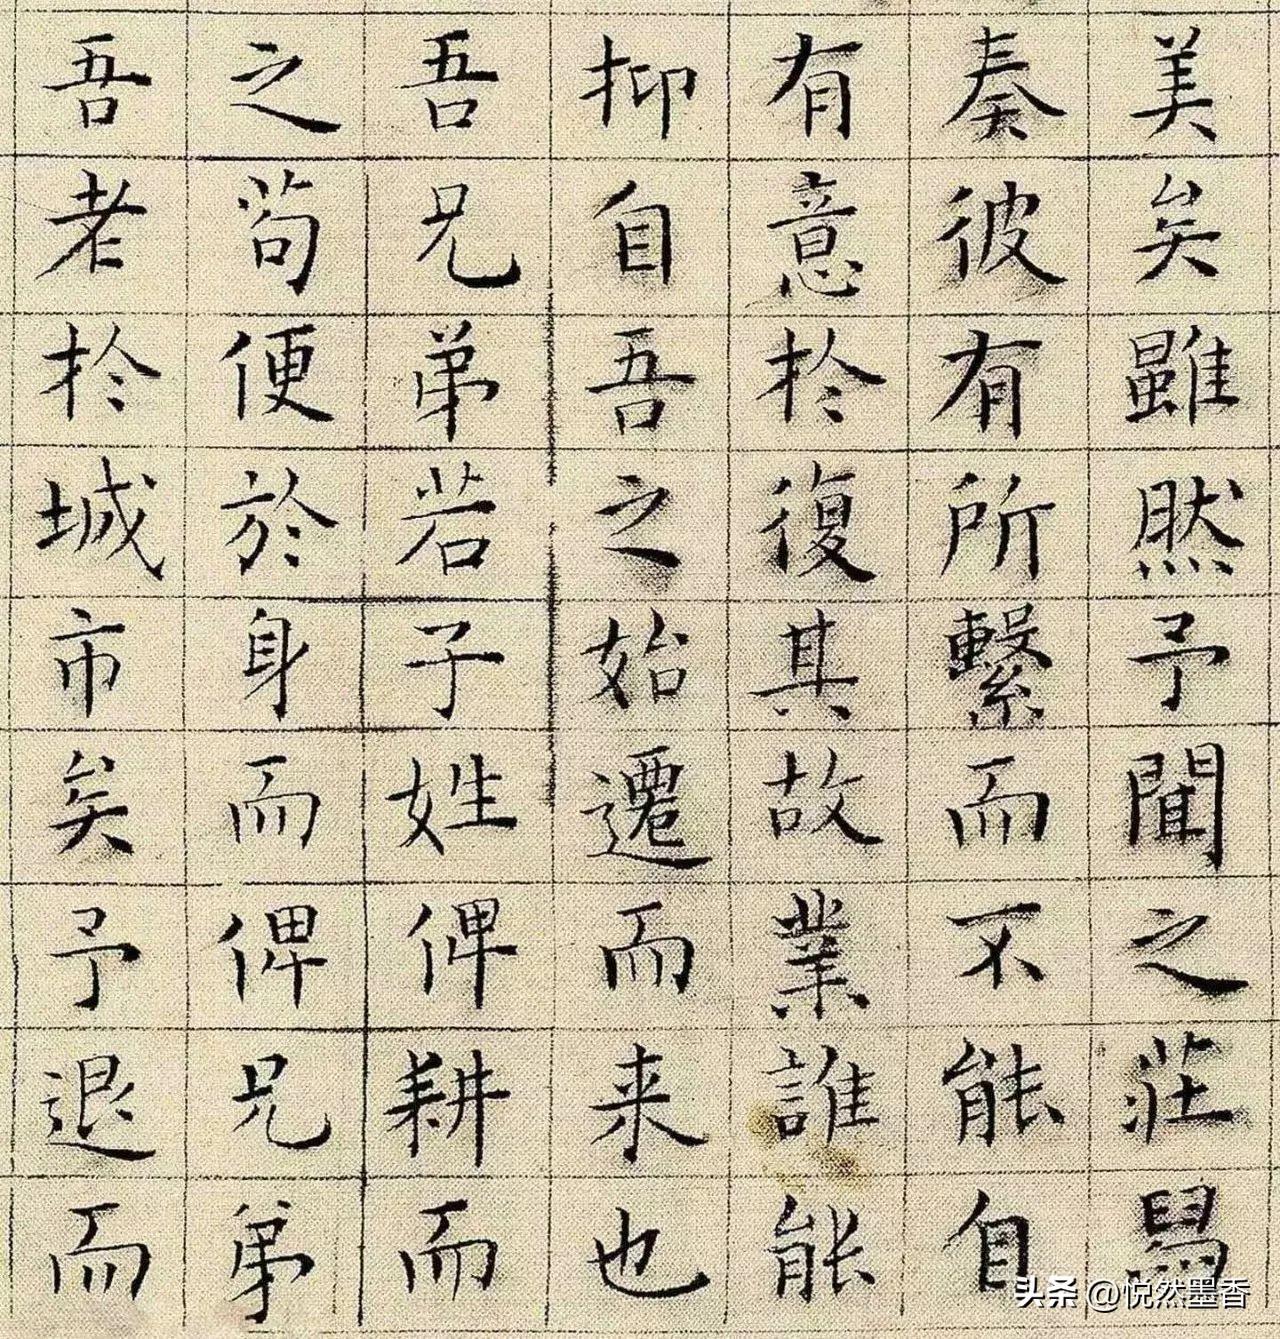 美矣雖然予聞之莊舄
奏彼有所繫而不能自
有意於復其故業誰能
抑自吾之始遷而来也
吾兄弟若子姓俾耕而
之苟便於身而俾兄弟
吾老於城市矣予退而
头条 @悦然墨香